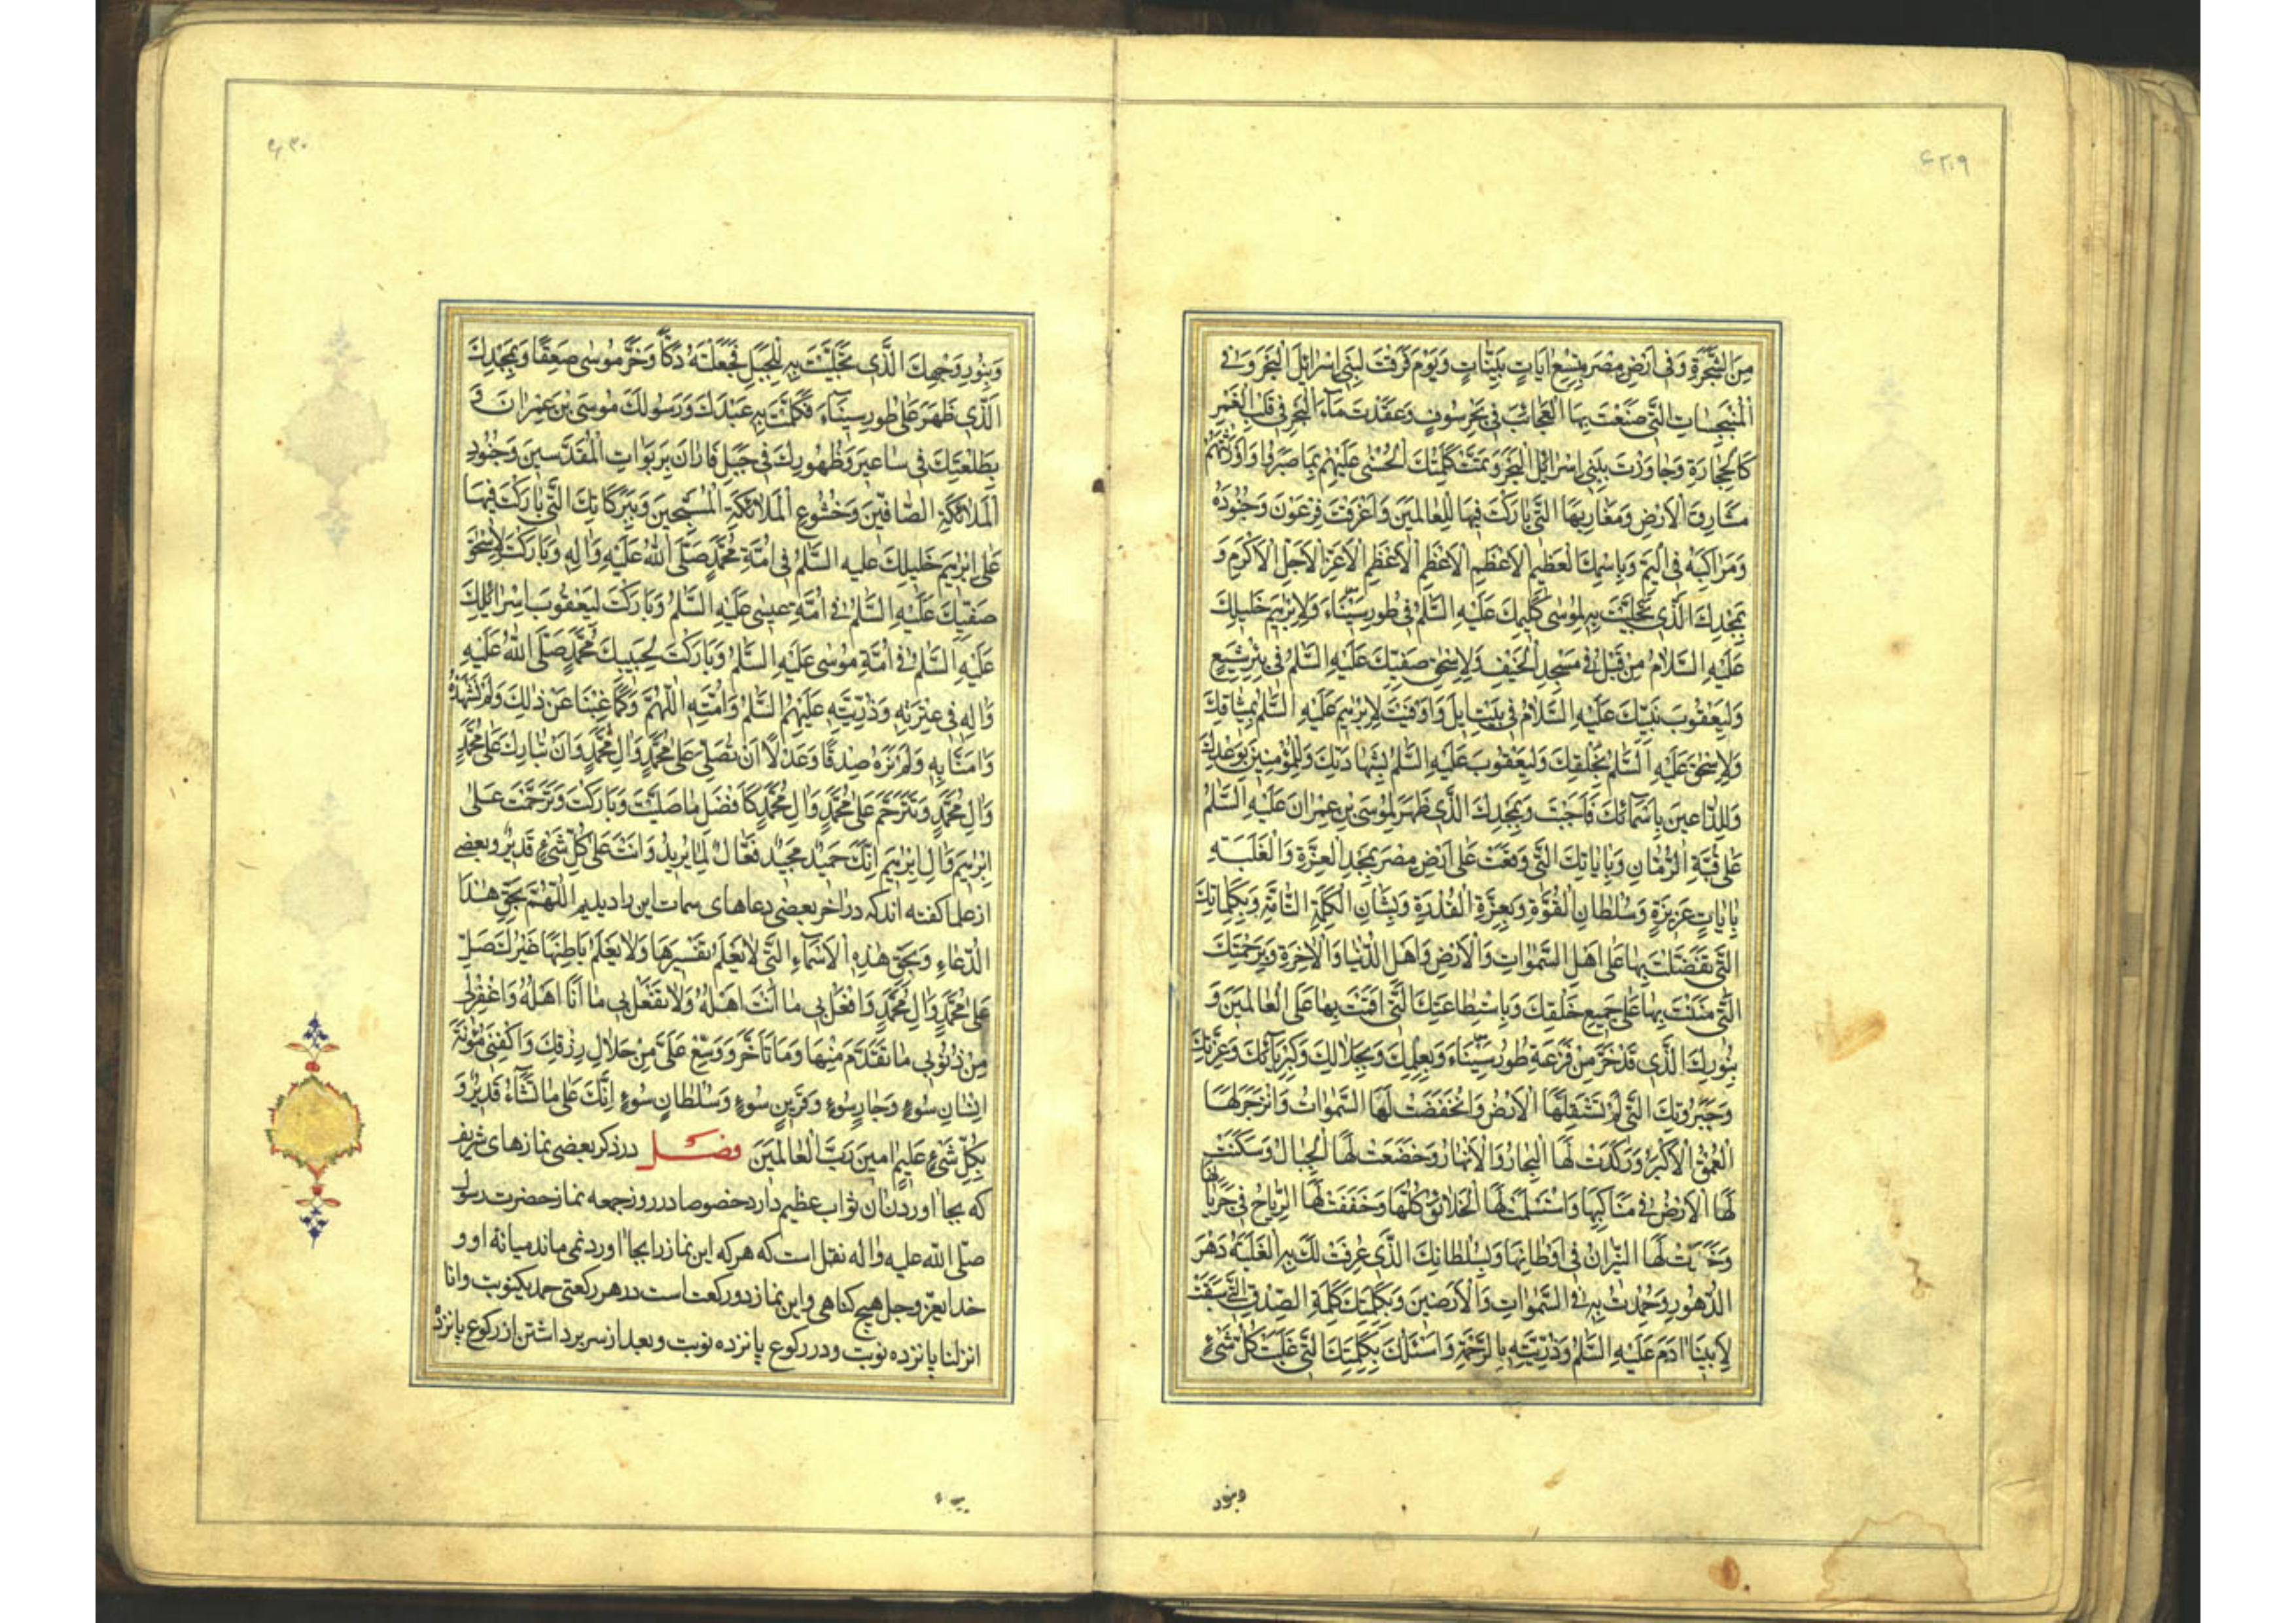 ۴۲۰۹
مِنَ الشَّجَرَةِ وَفى اَرْضِ مِصْرَ بِتِسْعِ اٰياتٍ بَيِّنٰاتٍ وَيَوْمَ فَرَقْتَ لِبَنى اِسْرٰائيلَ الْبَحْرَ وَفى
الْمُنْبَجِسٰاتِ الَّتى صَنَعْتَ بِهَا الْعَجٰائِبَ فى بَحْرِ سُوفٍ وَعَقَدْتَ مٰاءَ الْبَحْرِ فى قَلْبِ الْغَمْرِ
كَالْحِجٰارَةِ وَجٰاوَزْتَ بِبَنى اِسْرٰائيلَ الْبَحْرَ وَتَمَّتْ كَلِمَتُكَ الْحُسْنٰى عَلَيْهِمْ بِمٰا صَبَرُوا وَاَوْرَثْتَهُمْ
مَشٰارِقَ الْاَرْضِ وَمَغٰارِبَهَا الَّتى بٰارَكْتَ فيهٰا لِلْعٰالَمينَ وَاَغْرَقْتَ فِرْعَوْنَ وَجُنُودَهُ
وَمَرٰاكِبَهُ فِى الْيَمِّ وَبِاسْمِكَ الْعَظيمِ الْاَعْظَمِ الْاَعْظَمِ الْاَعْظَمِ الْاَعَزِّ الْاَجَلِّ الْاَكْرَمِ وَ
بِمَجْدِكَ الَّذى تَجَلَّيْتَ بِهِ لِمُوسٰى كَليمِكَ عَلَيْهِ السَّلٰمُ فى طُورِ سَيْنٰاءَ وَلِاِبْرٰهيمَ خَليلِكَ
عَلَيْهِ السَّلامُ مِنْ قَبْلُ فى مَسْجِدِ الْخَيْفِ وَلِاِسْحٰقَ صَفِيِّكَ عَلَيْهِ السَّلٰمُ فى بِئْرِ شِيَعٍ
وَلِيَعْقُوبَ نَبِيِّكَ عَلَيْهِ السَّلامُ فى بَيْتِ ايلَ وَاَوْفَيْتَ لِاِبْرٰهيمَ عَلَيْهِ السَّلٰمُ بِميثٰاقِكَ
وَلِاِسْحٰقَ عَلَيْهِ السَّلٰمُ بِحَلْفِكَ وَلِيَعْقُوبَ عَلَيْهِ السَّلٰمُ بِشَهٰادَتِكَ وَلِلْمُؤْمِنينَ بِوَعْدِكَ
وَلِلدّٰاعينَ بِاَسْمٰائِكَ فَاَجَبْتَ وَبِمَجْدِكَ الَّذى ظَهَرَ لِمُوسَى بْنِ عِمْرٰانَ عَلَيْهِ السَّلٰمُ
عَلٰى قُبَّةِ الرُّمّٰانِ وَبِاٰيٰاتِكَ الَّتى وَقَعَتْ عَلٰى اَرْضِ مِصْرَ بِمَجْدِ الْعِزَّةِ وَالْغَلَبَةِ
بِاٰيٰاتٍ عَزيزَةٍ وَسُلْطٰانِ الْقُوَّةِ وَبِعِزَّةِ الْقُدْرَةِ وَبِشَأنِ الْكَلِمَةِ التّٰامَّةِ وَبِكَلِمٰاتِكَ
الَّتى تَفَضَّلْتَ بِهٰا عَلٰى اَهْلِ السَّمٰوٰاتِ وَالْاَرْضِ وَاَهْلِ الدُّنْيٰا وَالْاٰخِرَةِ وَبِرَحْمَتِكَ
الَّتى مَنَنْتَ بِهٰا عَلٰى جَميعِ خَلْقِكَ وَبِاسْتِطٰاعَتِكَ الَّتى اَقَمْتَ بِهٰا عَلَى الْعٰالَمينَ وَ
بِنُورِكَ الَّذى قَدْ خَرَّ مِنْ فَزَعِهِ طُورُ سَيْنٰاءَ وَبِعِلْمِكَ وَبِجَلٰالِكَ وَكِبْرِيٰائِكَ وَعِزَّتِكَ
وَجَبَرُوتِكَ الَّتى لَمْ تَسْتَقِلَّهَا الْاَرْضُ وَانْخَفَضَتْ لَهَا السَّمٰوٰاتُ وَانْزَجَرَ لَهَا
الْعُمْقُ الْاَكْبَرُ وَرَكَدَتْ لَهَا الْبِحٰارُ وَالْاَنْهٰارُ وَخَضَعَتْ لَهَا الْجِبٰالُ وَسَكَنَتْ
لَهَا الْاَرْضُ فى مَنٰاكِبِهٰا وَاسْتَسْلَمَتْ لَهَا الْخَلٰائِقُ كُلُّهٰا وَخَفَقَتْ لَهَا الرِّيٰاحُ فى جَرَيٰانِهٰا
وَخَمَدَتْ لَهَا النّيرٰانُ فى اَوْطٰانِهٰا وَبِسُلْطٰانِكَ الَّذى عُرِفَتْ لَكَ بِهِ الْغَلَبَةُ دَهْرَ
الدُّهُورِ وَحُمِدْتَ بِهِ فِى السَّمٰوٰاتِ وَالْاَرَضينَ وَبِكَلِمَتِكَ كَلِمَةِ الصِّدْقِ الَّتى سَبَقَتْ
لِاَبينٰا اٰدَمَ عَلَيْهِ السَّلٰمُ وَذُرِّيَّتِهِ بِالرَّحْمَةِ وَاَسْئَلُكَ بِكَلِمَتِكَ الَّتى غَلَبَتْ كُلَّ شَىْءٍ
وبنور
۴۳۰
وَبِنُورِ وَجْهِكَ الَّذى تَجَلَّيْتَ بِهِ لِلْجَبَلِ فَجَعَلْتَهُ دَكًّا وَخَرَّ مُوسٰى صَعِقًا وَبِمَجْدِكَ
الَّذى ظَهَرَ عَلٰى طُورِ سَيْنٰاءَ فَكَلَّمْتَ بِهِ عَبْدَكَ وَرَسُولَكَ مُوسَى بْنَ عِمْرٰانَ وَ
بِطَلْعَتِكَ فى سٰاعيرَ وَظُهُورِكَ فى جَبَلِ فٰارٰانَ بِرَبَوٰاتِ الْمُقَدَّسينَ وَجُنُودِ
الْمَلٰائِكَةِ الصّٰافّينَ وَخُشُوعِ الْمَلٰائِكَةِ الْمُسَبِّحينَ وَبِبَرَكٰاتِكَ الَّتى بٰارَكْتَ فيهٰا
عَلٰى اِبْرٰهيمَ خَليلِكَ عليه السَّلٰمُ فى اُمَّةِ مُحَمَّدٍ صَلَّى اللّٰهُ عَلَيْهِ وَاٰلِهِ وَبٰارَكْتَ لِاِسْحٰقَ
صَفِيِّكَ عَلَيْهِ السَّلٰمُ فى اُمَّةِ عيسٰى عَلَيْهِ السَّلٰمُ وَبٰارَكْتَ لِيَعْقُوبَ اِسْرٰائيلِكَ
عَلَيْهِ السَّلٰمُ فى اُمَّةِ مُوسٰى عَلَيْهِ السَّلٰمُ وَبٰارَكْتَ لِحَبيبِكَ مُحَمَّدٍ صَلَّى اللّٰهُ عَلَيْهِ
وَاٰلِهِ فى عِتْرَتِهِ وَذُرِّيَّتِهِ عَلَيْهِمُ السَّلٰمُ وَاُمَّتِهِ اَللّٰهُمَّ وَكَمٰا غِبْنٰا عَنْ ذٰلِكَ وَلَمْ نَشْهَدْهُ
وَاٰمَنّٰا بِهِ وَلَمْ نَرَهُ صِدْقًا وَعَدْلًا اَنْ تُصَلِّىَ عَلٰى مُحَمَّدٍ وَاٰلِ مُحَمَّدٍ وَاَنْ تُبٰارِكَ عَلٰى مُحَمَّدٍ
وَاٰلِ مُحَمَّدٍ وَتَتَرَحَّمَ عَلٰى مُحَمَّدٍ وَاٰلِ مُحَمَّدٍ كَاَفْضَلِ مٰا صَلَّيْتَ وَبٰارَكْتَ وَتَرَحَّمْتَ عَلٰى
اِبْرٰهيمَ وَاٰلِ اِبْرٰهيمَ اِنَّكَ حَميدٌ مَجيدٌ فَعّٰالٌ لِمٰا يُريدُ وَاَنْتَ عَلٰى كُلِّ شَىْءٍ قَديرٌ وبعضى
از علما گفته اند که در اخر بعضى دعاهاى سمات اين را ديديم اَللّٰهُمَّ بِحَقِّ هٰذَا
الدُّعٰاءِ وَبِحَقِّ هٰذِهِ الْاَسْمٰاءِ الَّتى لٰا يَعْلَمُ تَفْسيرَهٰا وَلٰا يَعْلَمُ بٰاطِنَهٰا غَيْرُكَ صَلِّ
عَلٰى مُحَمَّدٍ وَاٰلِ مُحَمَّدٍ وَافْعَلْ بى مٰا اَنْتَ اَهْلُهُ وَلٰا تَفْعَلْ بى مٰا اَنَا اَهْلُهُ وَاغْفِرْ لى
مِنْ ذُنُوبى مٰا تَقَدَّمَ مِنْهٰا وَمٰا تَاَخَّرَ وَوَسِّعْ عَلَىَّ مِنْ حَلٰالِ رِزْقِكَ وَاكْفِنى مَؤُنَةَ
اِنْسٰانِ سُوءٍ وَجٰارِ سُوءٍ وَقَرينِ سُوءٍ وَسُلْطٰانِ سُوءٍ اِنَّكَ عَلٰى مٰا تَشٰاءُ قَديرٌ وَ
بِكُلِّ شَىْءٍ عَليمٌ اٰمينَ رَبَّ الْعٰالَمينَ فصل در ذكر بعضى نمازهاى شريف
که بجا اوردن ان ثواب عظيم دارد خصوصا در روز جمعه نماز حضرت رسول
صلّى اللّه عليه واله نقل است که هر که اين نماز را بجا اورد نمى ماند ميانهٔ او و
خداى عزّ وجل هيچ گناهى واين نماز دو رکعت است در هر رکعتى حمد يکنوبت وانا
انزلنا پانزده نوبت ودر رکوع پانزده نوبت وبعد از سر برداشتن از رکوع پانزده